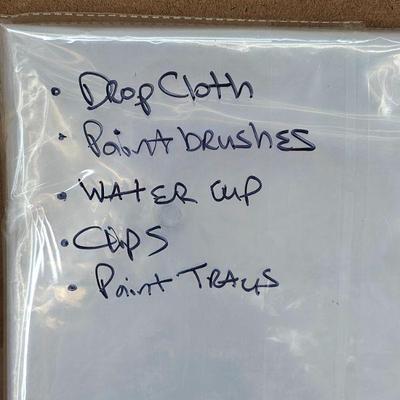 • Drop Cloth
• Paint brushes
• WATER CUP
• Cups
• Paint TRAYS